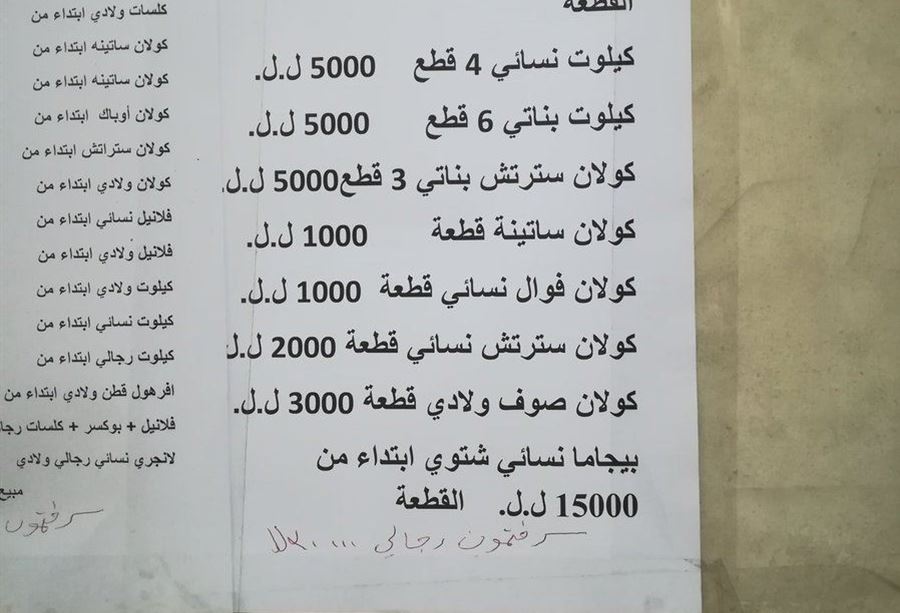 القطعة
كيلوت نسائي 4 قطع 5000 ل.ل.
كيلوت بناتي 6 قطع 5000 ل.ل.
كولان سترتش بناتي 3 قطع5000 ل.ل.
كولان ساتينة قطعة 1000 ل.ل.
كولان فوال نسائي قطعة 1000 ل.ل.
كولان سترتش نسائي قطعة 2000 ل.ل
كولان صوف ولادي قطعة 3000 ل.ل.
بيجاما نسائي شتوي ابتداء من
15000 ل.ل. القطعة
رجالي
كلسات ولادي ابتداء من
كولان ساتينه ابتداء من
كولان ساتينه ابتداء من
كولان أوباك ابتداء من
كولان ستراتش ابتداء من
كولان ولادي ابتداء من
فلانيل نسائي ابتداء من
فلانيل ولادي ابتداء من
كيلوت ولادي ابتداء من
كيلوت نسائي ابتداء من
كيلوت رجالي ابتداء من
افرهول قطن ولادي ابتداء من
فلانيل + بوكسر + كلسات رجا
لانجري نسائي رجالي ولادي
مبيع